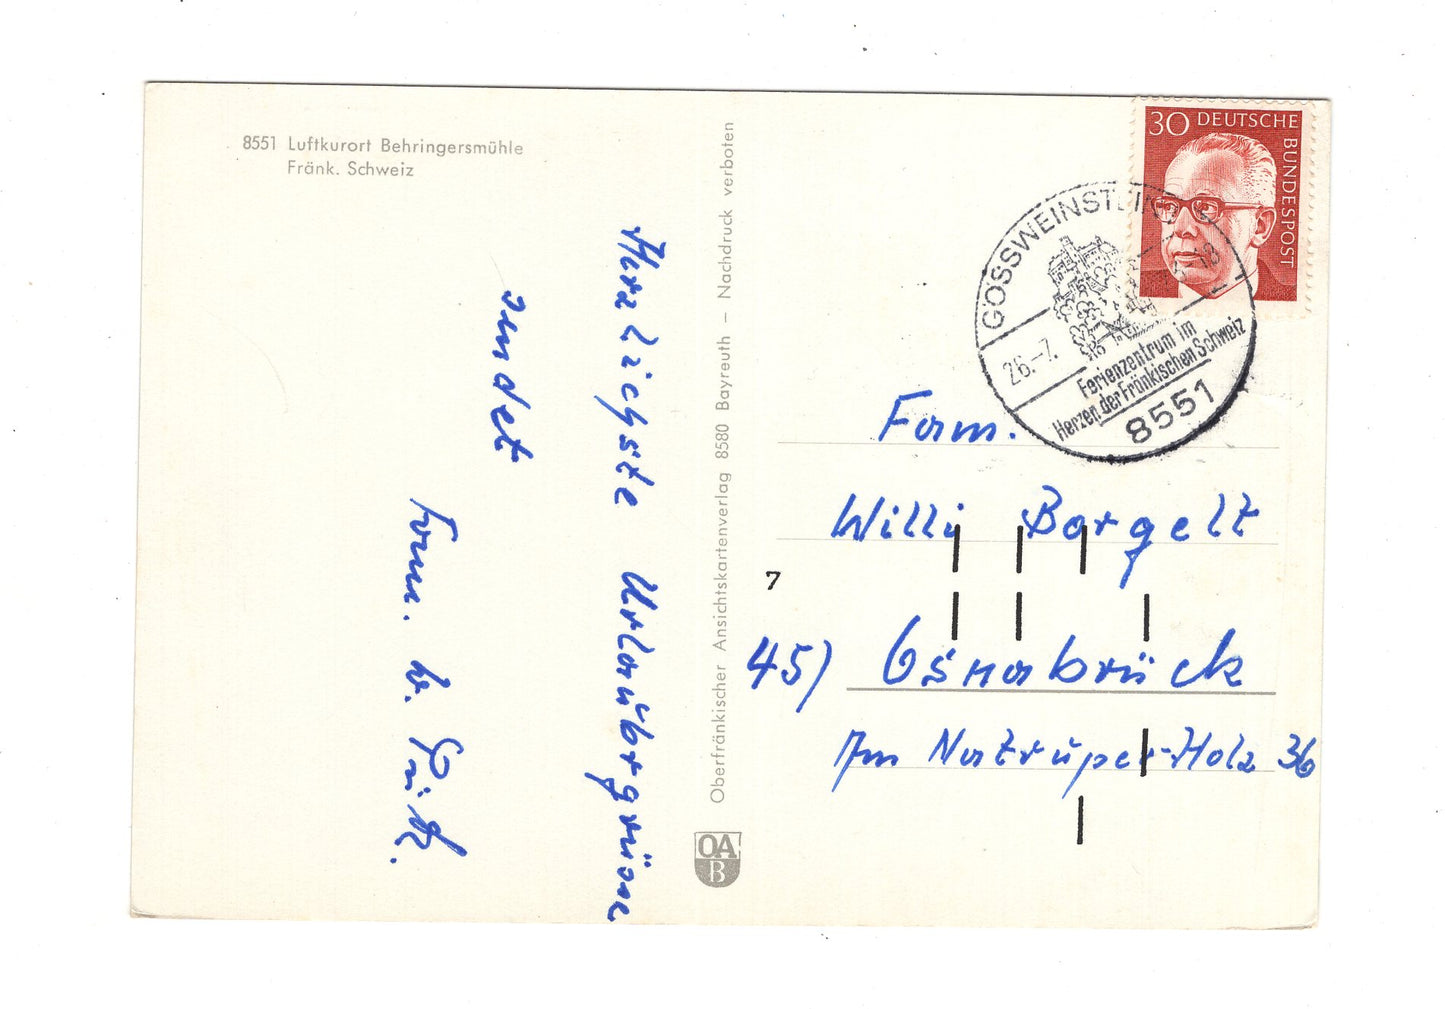 8551 Luftkurort Behringersmühle
Fränk. Schweiz
Herzlichste Urlaubsgrüsse
sendet
Fam. W.
Oberfränkischer Ansichtskartenverlag 8580 Bayreuth – Nachdruck verboten
OA
B
30 DEUTSCHE
BUNDESPOST
GÖSSWEINSTEIN
26.-7.
Ferienzentrum im
Herzen der Fränkischen Schweiz
8551
Fam.
Willi Borgelt
7
45) Osnabrück
Am Natruper-Holz 36